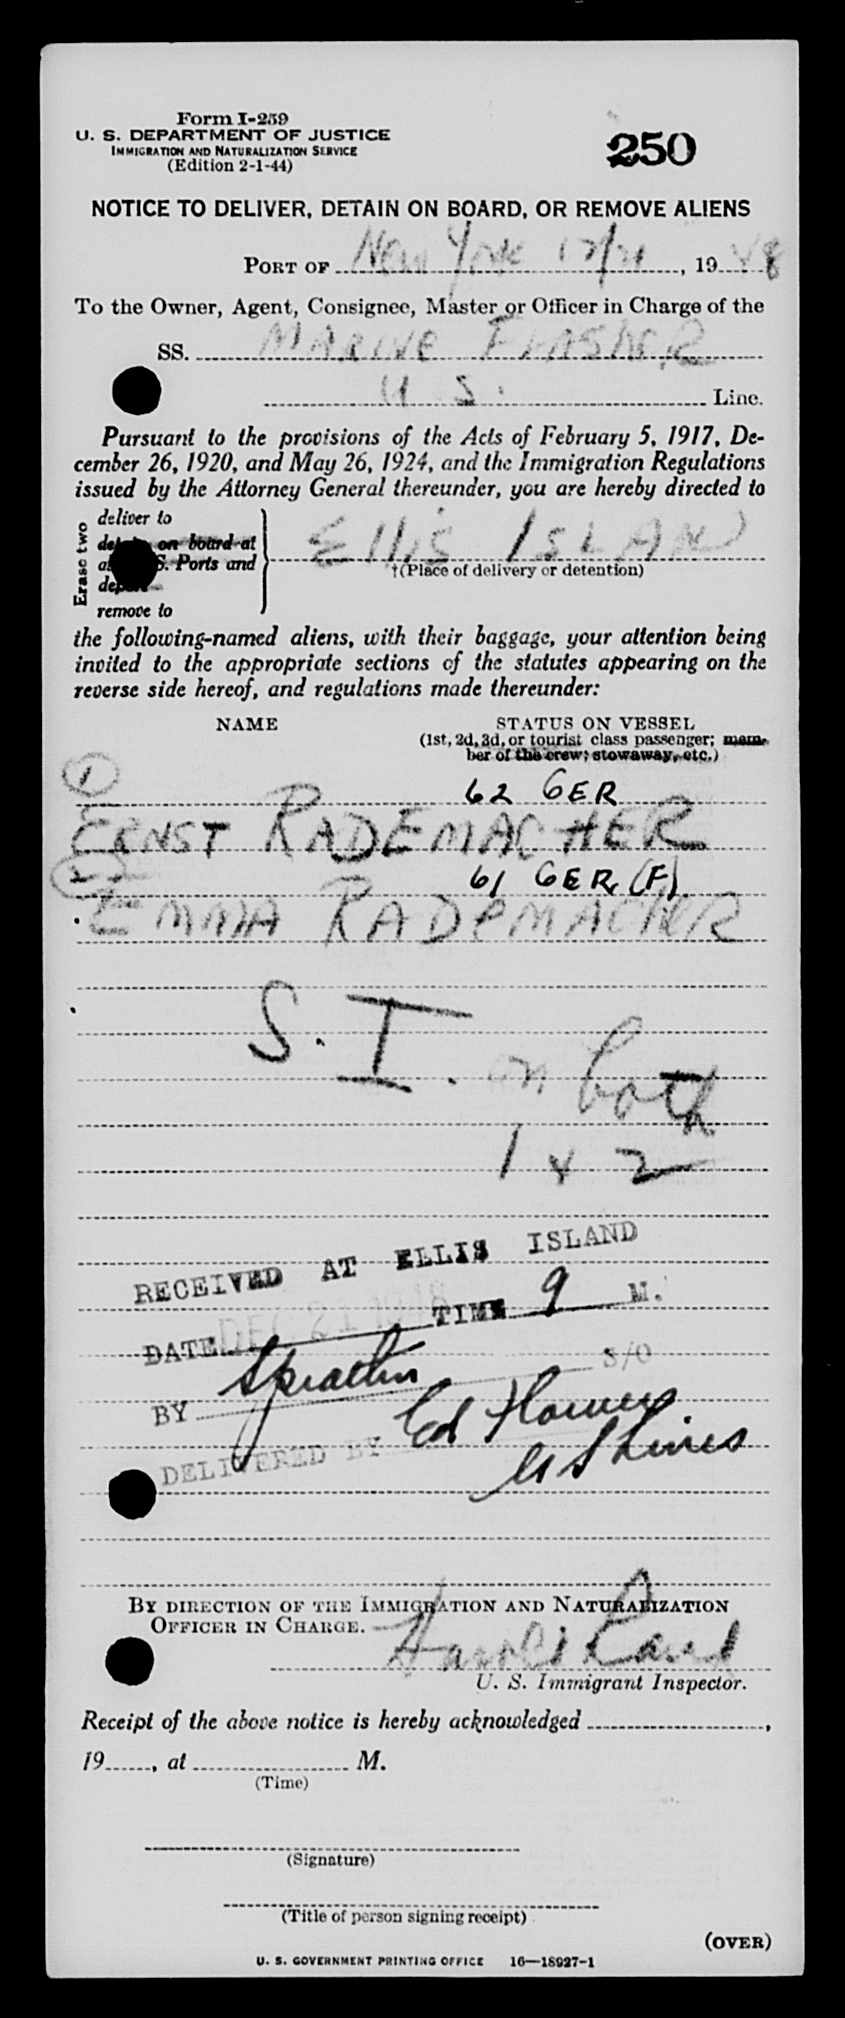 Form I-259
U. S. DEPARTMENT OF JUSTICE
IMMIGRATION AND NATURALIZATION SERVICE
(Edition 2-1-44)
250
NOTICE TO DELIVER, DETAIN ON BOARD, OR REMOVE ALIENS
PORT OF New York 12/21, 1948
To the Owner, Agent, Consignee, Master or Officer in Charge of the
SS. MARINE FLASHER
U S. Line.
Pursuant to the provisions of the Acts of February 5, 1917, De-
cember 26, 1920, and May 26, 1924, and the Immigration Regulations
issued by the Attorney General thereunder, you are hereby directed to
Erase two
deliver to
on board at
S. Ports and
remove to
ELLIS ISLAND
†(Place of delivery or detention)
the following-named aliens, with their baggage, your attention being
invited to the appropriate sections of the statutes appearing on the
reverse side hereof, and regulations made thereunder:
NAME STATUS ON VESSEL
(1st, 2d, 3d, or tourist class passenger; mem-
ber of the crew; stowaway, etc.)
1 62 GER
ERNST RADEMACHER
2 61 GER (F)
EMMA RADEMACHER
S. I. on both
1 & 2
RECEIVED AT ELLIS ISLAND
DATE DEC 21 1948 TIME 9 M.
BY S/O
DELIVERED BY Ed
U S Lines
BY DIRECTION OF THE IMMIGRATION AND NATURALIZATION
OFFICER IN CHARGE.
Harold
U. S. Immigrant Inspector.
Receipt of the above notice is hereby acknowledged ,
19 , at M.
(Time)
(Signature)
(Title of person signing receipt)
(OVER)
U. S. GOVERNMENT PRINTING OFFICE 16—18927-1